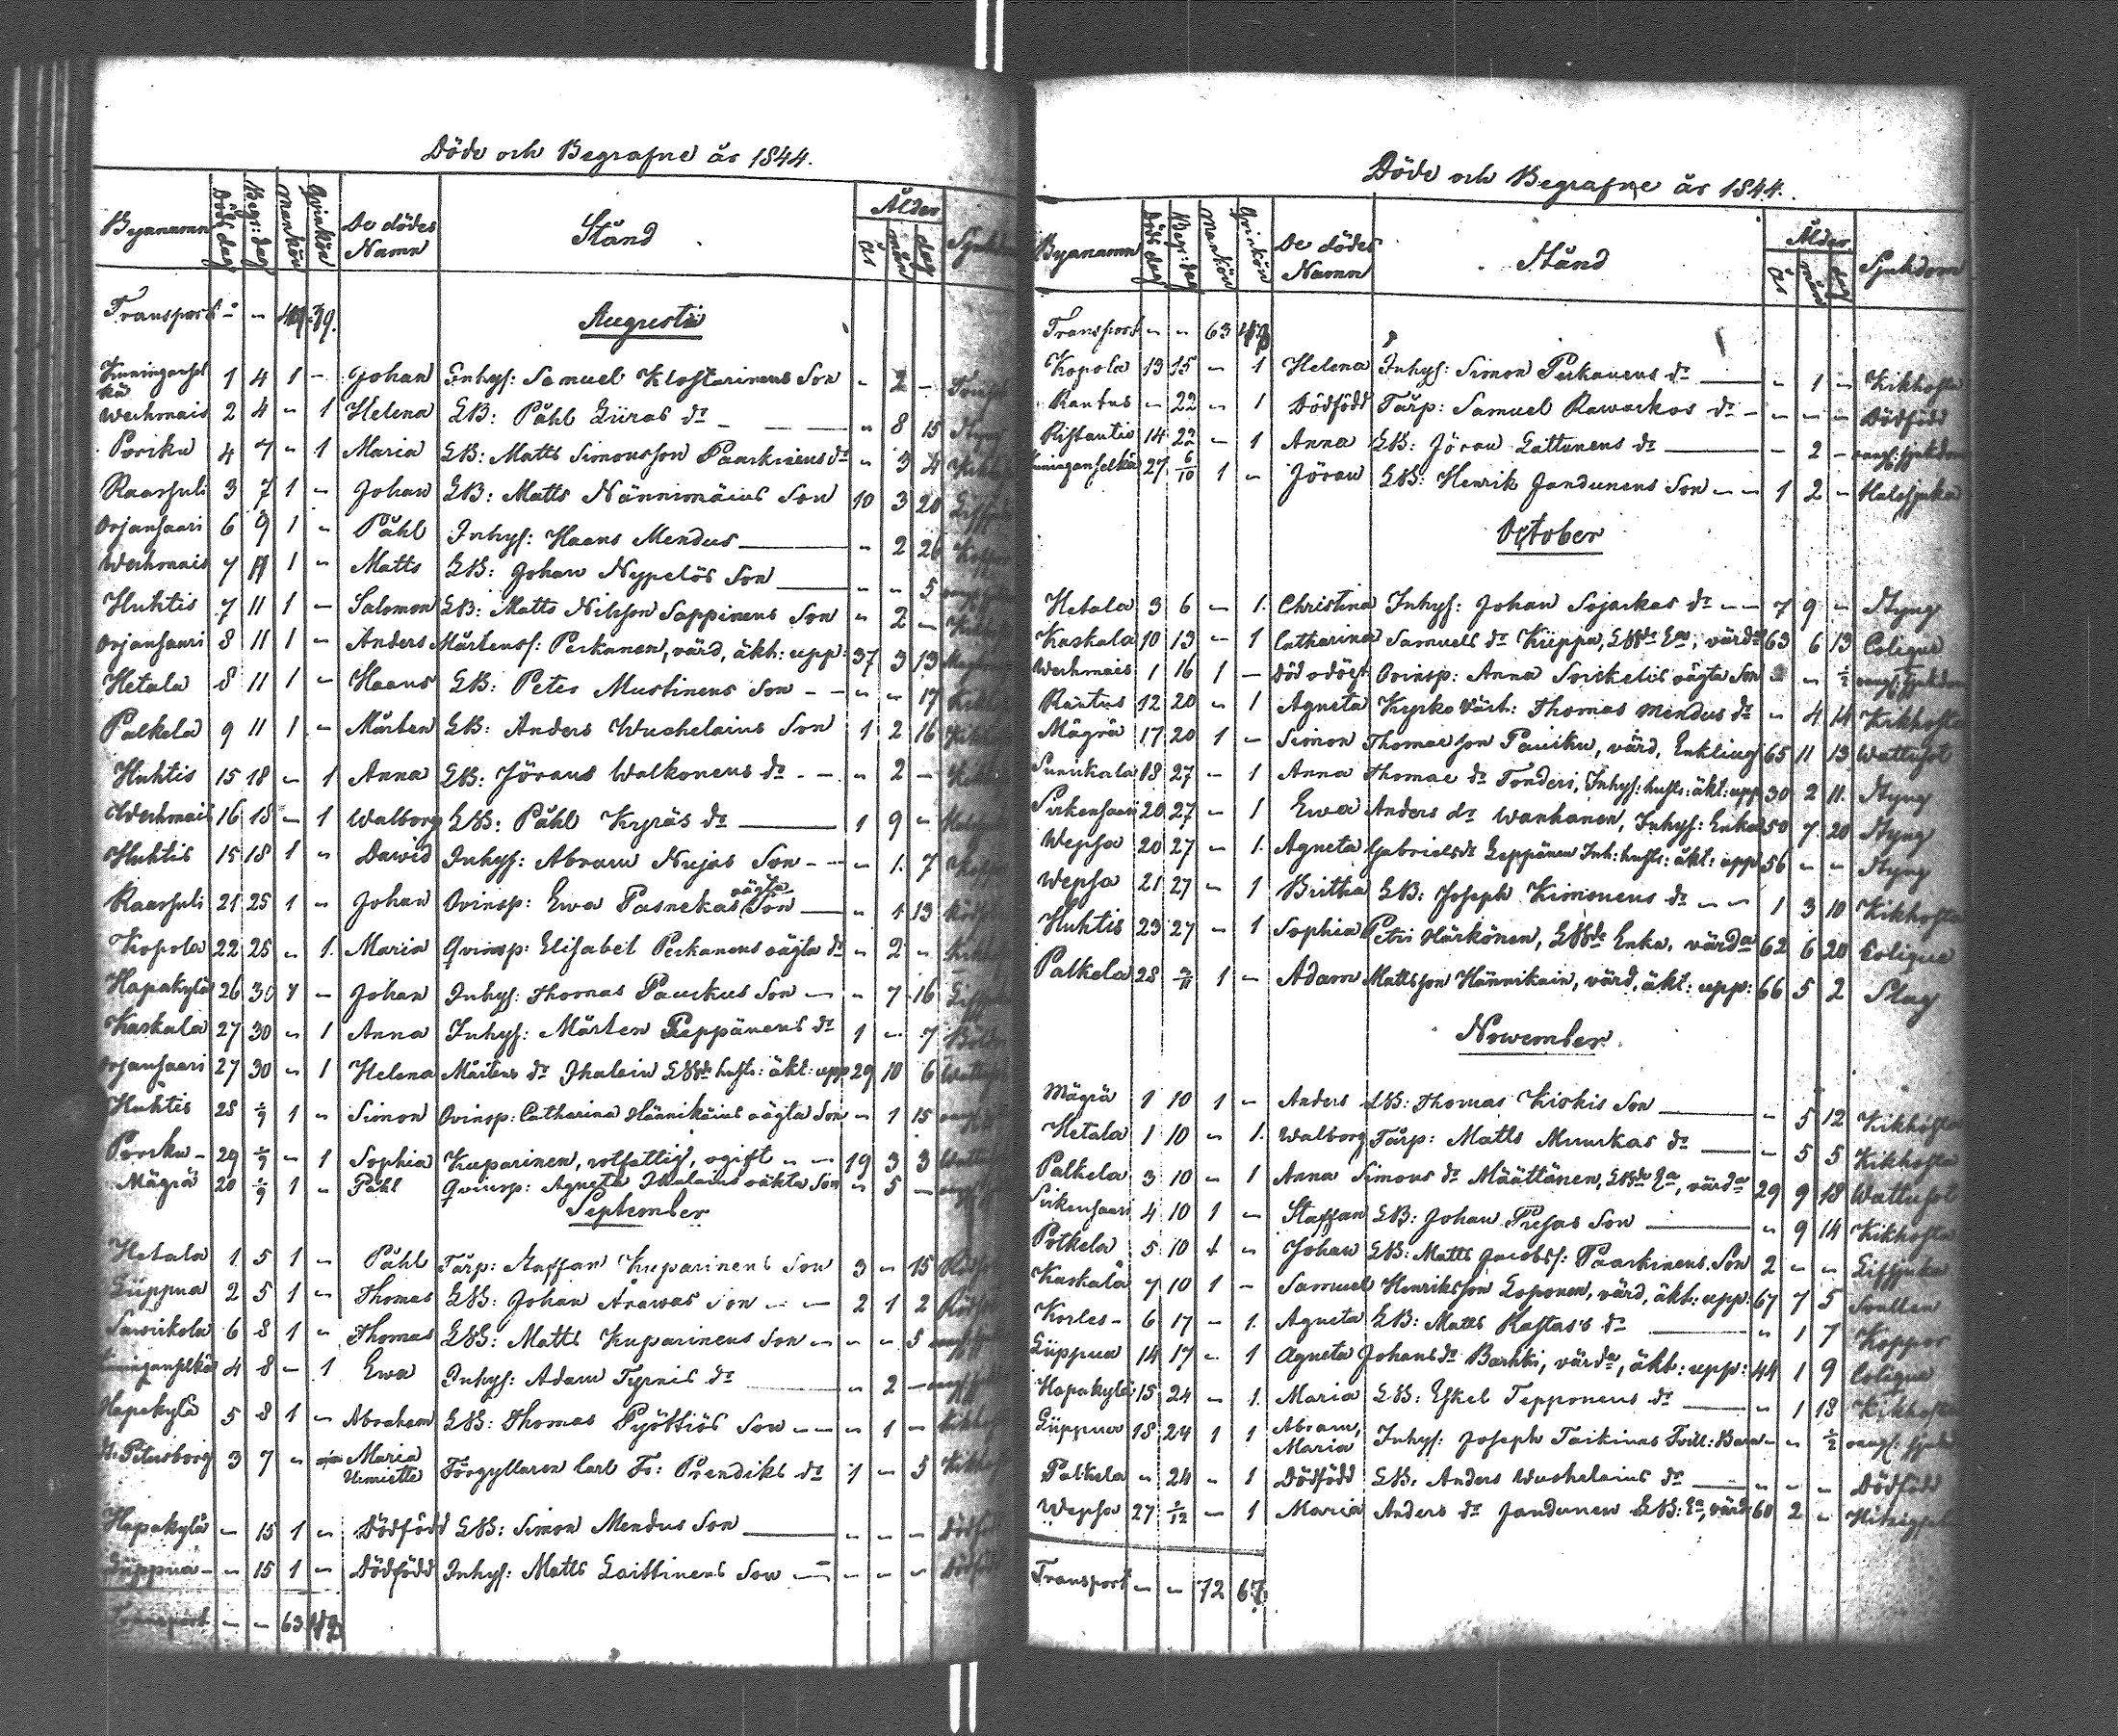 Döde och Begrafne år 1844.
Byanamn Döds dag Begr: dag Mankön Qvinkön De dödes Namn Stånd Ålder år mån dag
Transport - - 39.
Augusti
1 4 1 - Johan Inhys: Samuel Klostarinens Son - 2 -
Werhmais 2 4 - 1 Helena LB: Påhl Liiras dr - 8 15
Porsku 4 7 - 1 Maria LB: Matts Simonsson Paarkinens dr - 3 4
Raassuli 3 7 1 - Johan LB: Matts Männimäius Son 10 3 20
Orjansaari 6 9 1 - Påhl Inhys: Haans Mendus - 2 26
Werhmais 7 11 1 - Matts LB: Johan Nypelös Son - - 5
Huhtis 7 11 1 - Salomon LB: Matts Nilsson Sappinens Son - 2 -
Orjansaari 8 11 1 - Anders Mårtenss: Perkanen, värd, äkt: upp: 37 3 13
Hetala 8 11 1 - Haans LB: Peter Mustinens Son - - 17
Palkela 9 11 1 - Mårten LB: Anders Wuohelains Son 1 2 16
Huhtis 15 18 - 1 Anna LB: Jörans Walkonens dr - 2 -
Werhmais 16 18 - 1 Walborg LB: Påhl Kyräs dr 1 9 -
Huhtis 15 18 1 - Dawid Inhys: Abram Nujas Son - 1 7
Raassuli 21 25 1 - Johan Qvinsp: Ewa Pasnekas oägta Son - 1 13
Kopola 22 25 - 1 Maria Qvinsp: Elisabet Perkanens oägta dr - 2 -
Hapakylä 26 30 1 - Johan Inhys: Thomas Pauckus Son - 7 16
Kaskala 27 30 - 1 Anna Inhys: Mårten Reppänens dr 1 - 7
Orjansaari 27 30 - 1 Helena Mårtens dr Ihalain LBde hustr: äkt: upp 29 10 6
Huhtis 28 1/9 1 - Simon Qvinsp: Catharina Hännikäins oägta Son - 1 15
Porsku 29 1/9 - 1 Sophia Kuparinen, rotfattig, ogift 19 3 3
Mägrä 20 1/9 1 - Påhl Qvinsp: Agneta Ihalains oäkta Son - 5 -
September
Hetala 1 5 1 - Påhl Tårp: Staffan Kuparinens Son 3 - 15
Liippua 2 5 1 - Thomas LB: Johan Arawas Son 2 1 2
Saurikola 6 8 1 - Thomas LB: Matts Kuparinens Son - - 5
4 8 - 1 Ewa Inhys: Adam Tyrnis dr - 2 -
Hapakylä 5 8 1 - Abraham LB: Thomas Pyöttiös Son - 1 -
St. Petersborg 3 7 - Maria Förgyllaren Carl Fr: Prendiks dr 1 - 3
Hapakylä - 15 1 - Dödfödd LB: Simon Mendus Son - - -
Liippua - 15 1 - Dödfödd Inhys: Matts Laittinens Son - - -
Transport - - 63
Döde och Begrafne år 1844.
Byanamn Döds dag Begr: dag Mankön Qvinkön De dödes Namn Stånd Ålder år mån dag Sjukdom
Transport - - 63
Kopola 13 15 - 1 Helena Inhys: Simon Perkanens dr - 1 - Kikhosta
Rautus - 22 - 1 Dödfödd Tårp: Samuel Rawaskos dr - - - Dödfödd
Ristautio 14 22 - 1 Anna LB: Jöran Lattunens dr - 2 - oangif: sjukdom
27 6/10 1 - Jöran LB: Henrik Jandunens Son 1 2 - Halssjuka
October
Hetala 3 6 - 1 Christina Inhys: Johan Sojarkas dr 7 9 - Styng
Kaskala 10 13 - 1 Catharina Samuels dr Kiippa, LBde Ea, värda 63 6 13 Colique
Werhmais 1 16 1 - Död odöpt Qvinsp: Anna Sorkelis oägta Son - 1/2 oangif: sjukdom
Rautus 12 20 - 1 Agneta Kyrko Värt: Thomas Mendus dr - 4 14 Kikhosta
Mägrä 17 20 1 - Simon Thomasson Pauku, värd, Enkling 65 11 13 Wattusot
Saurikala 18 27 - 1 Anna Thomae dr Tonderi, Inhys: hustr: äkt: upp 30 2 11 Styng
Sirkensaari 20 27 - 1 Ewa Anders dr Wanhanen, Inhys: Enka 50 7 20 Styng
Wepsa 20 27 - 1 Agneta Gabriels dr Leppänen Inh: hustr: äkt: upp 56 - - Styng
Wepsa 21 27 - 1 Britha LB: Joseph Kimonens dr 1 3 10 Kikhosta
Huhtis 23 27 - 1 Sophia Petri Härkönen, LBde Enka, värda 62 6 20 Colique
Palkela 28 1 - Adam Mattsson Hännikain, värd, äkt: upp: 66 5 2 Slag
November
Mägrä 1 10 1 - Anders LB: Thomas Kiskis Son - 5 12 Kikhosta
Hetala 1 10 - 1 Walborg Tårp: Matts Muurkas dr - 5 5 Kikhosta
Palkela 3 10 - 1 Anna Simons dr Määttänen, LBde Ea, värda 29 9 18 Wattusot
Sirkensaari 4 10 1 - Staffan LB: Johan Pusas Son - 9 14 Kikhosta
Potkela 5 10 1 - Johan LB: Matts Jacobss: Paarkinens Son 2 - - Lissjuka
Kaskala 7 10 1 - Samuel Henriksson Loponen, värd, äkt: upp: 67 7 5 Svullen
Korles 6 17 - 1 Agneta LB: Matts Rastas's dr - 1 7 Koppor
Liippua 14 17 - 1 Agneta Johans dr Barkki, värda, äkt: upp: 44 1 9 Colique
Hapakylä 15 24 - 1 Maria LB: Eskel Tepponens dr - 1 18 Kikhosta
Liippua 18 24 1 1 Abram, Maria Inhys: Joseph Taikinas Tvill: Barn - - 1/2 oangif: sjukd
Palkela - 24 - 1 Dödfödd LB: Anders Wuohelains dr - - - Dödfödd
Wepsa 27 1/12 - 1 Maria Anders dr Jandunen LB: Ea, värda 60 2 -
Transport - - 72 67